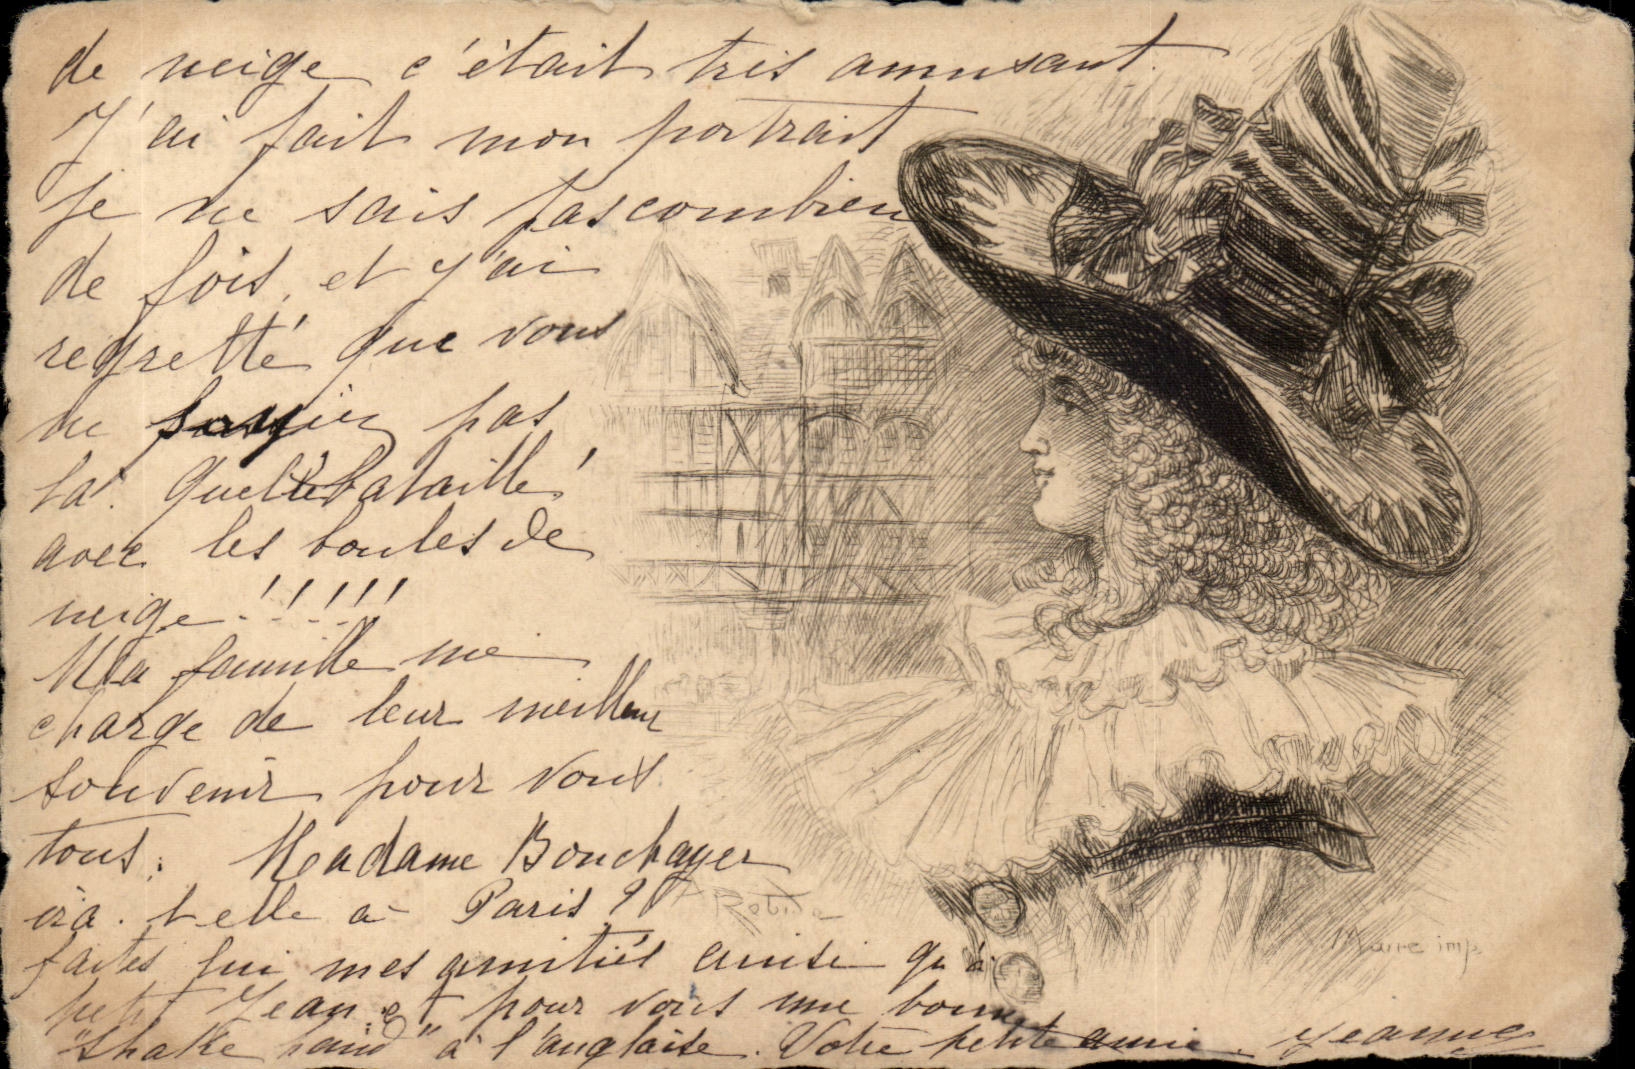 de neige c'était très amusant.
J'ai fait mon portrait
je ne sais pas combien
de fois, et j'ai
regretté que vous
ne soyiez pas
là. Quelle bataille!
avec les boules de
neige!!!!!
Ma famille me
charge de leur meilleur
souvenir pour vous
tous. Madame Bouchayer
ira-t-elle à Paris?
faites lui mes amitiés ainsi qu'à
petit Jean et pour vous une bonne
"shake hand" à l'anglaise. Votre petite amie. Jeanne
A. Robida
Maire imp.